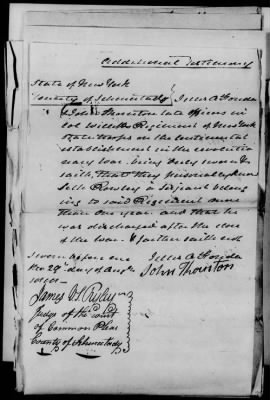 Additional Testimony
State of New York
County of Schenectady } Jellis A Fonda
& John Thornton late officers in
Col Willetts Regiment of New York
State troops on the continental
establishment in the revolution-
ary war. being duly sworn
saith, that they personally knew
a Serjeant belong
ing to said Regiment more
than one year and that he
was discharged after the close
of the War. & further saith not
Sworn before me Jellis A Fonda
the 29th day of Augt John Thornton
James
Judge of the court
of Common Pleas
County of Schenectady